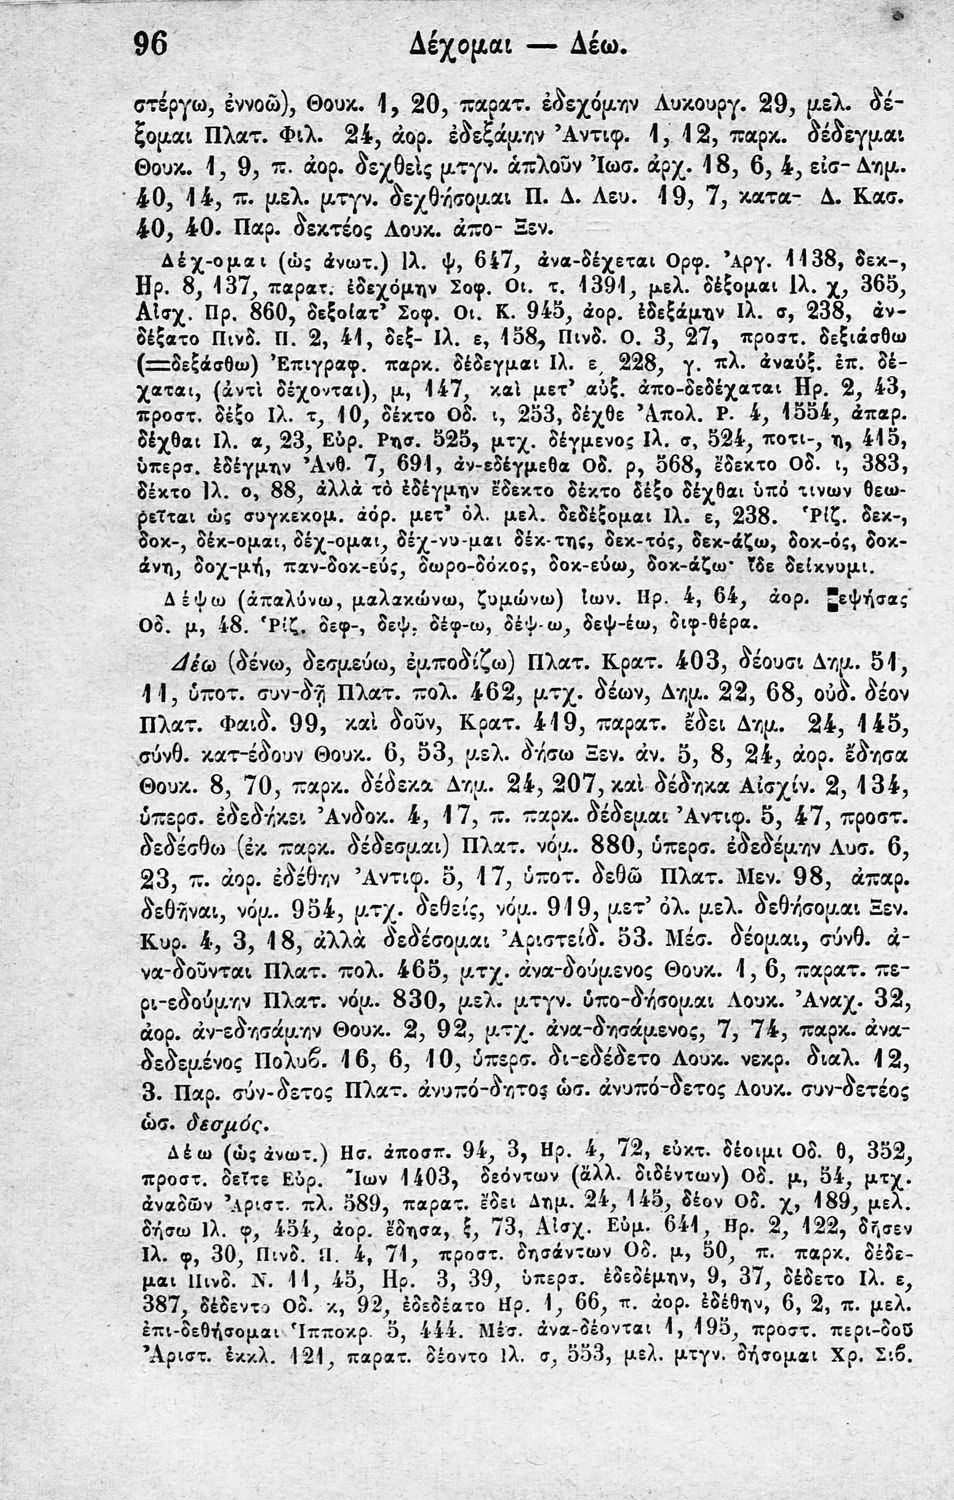 96
Δέχομαι — Δέω.
στέργω, ἐννοῶ), Θουκ. 1, 20, παρατ. ἐδεχόμην Λυκουργ. 29, μελ. δέ-
ξομαι Πλατ. Φιλ. 24, ἀορ. ἐδεξάμην Ἀντιφ. 1, 12, παρκ. δέδεγμαι
Θουκ. 1, 9, π. ἀορ. δεχθεὶς μτγν. ἁπλοῦν Ἰωσ. ἀρχ. 18, 6, 4, εἰσ- Δημ.
40, 14, π. μελ. μτγν. δεχθήσομαι Π. Δ. Λευ. 19, 7, κατα- Δ. Κασ.
40, 40. Παρ. δεκτέος Λουκ. ἀπο- Ξεν.
Δέχ-ομαι (ὡς ἀνωτ.) Ἰλ. ψ, 647, ἀνα-δέχεται Ορφ. Ἀργ. 1138, δεκ-,
Ηρ. 8, 137, παρατ. ἐδεχόμην Σοφ. Οι. τ. 1391, μελ. δέξομαι Ιλ. χ, 365,
Αἰσχ. Πρ. 860, δεξοίατ' Σοφ. Οι. Κ. 945, ἀορ. ἐδεξάμην Ιλ. σ, 238, ἀν-
δέξατο Πινδ. Π. 2, 41, δεξ- Ιλ. ε, 158, Πινδ. Ο. 3, 27, προστ. δεξιάσθω
(=δεξάσθω) Ἐπιγραφ. παρκ. δέδεγμαι Ιλ. ε, 228, γ. πλ. ἀναύξ. ἐπ. δέ-
χαται, (ἀντὶ δέχονται), μ, 147, καὶ μετ' αὐξ. ἀπο-δεδέχαται Ηρ. 2, 43,
προστ. δέξο Ιλ. τ, 10, δέκτο Οδ. ι, 253, δέχθε Ἀπολ. Ρ. 4, 1554, ἀπαρ.
δέχθαι Ιλ. α, 23, Εὐρ. Ρησ. 525, μτχ. δέγμενος Ιλ. σ, 524, ποτι-, η, 415,
ὑπερσ. ἐδέγμην Ἀνθ. 7, 691, ἀν-εδέγμεθα Οδ. ρ, 568, ἔδεκτο Οδ. ι, 383,
δέκτο Ιλ. ο, 88, ἀλλὰ τὸ ἐδέγμην ἔδεκτο δέκτο δέξο δέχθαι ὑπό τινων θεω-
ρεῖται ὡς συγκεκομ. ἀόρ. μετ' ὀλ. μελ. δεδέξομαι Ιλ. ε, 238. Ῥίζ. δεκ-,
δοκ-, δέκ-ομαι, δέχ-ομαι, δέχ-νυ-μαι δέκ-της, δεκ-τός, δεκ-άζω, δοκ-ός, δοκ-
άνη, δοχ-μή, παν-δοκ-εύς, δωρο-δόκος, δοκ-εύω, δοκ-άζω· ἴδε δείκνυμι.
Δέψω (ἁπαλύνω, μαλακώνω, ζυμώνω) ἰων. Ηρ. 4, 64, ἀορ. εψήσας
Οδ. μ, 48. Ῥίζ. δεφ-, δεψ. δέφ-ω, δέψ-ω, δεψ-έω, διφ-θέρα.
Δέω (δένω, δεσμεύω, ἐμποδίζω) Πλατ. Κρατ. 403, δέουσι Δημ. 51,
11, ὑποτ. συν-δῇ Πλατ. πολ. 462, μτχ. δέων, Δημ. 22, 68, οὐδ. δέον
Πλατ. Φαιδ. 99, καὶ δοῦν, Κρατ. 419, παρατ. ἔδει Δημ. 24, 145,
σύνθ. κατ-έδουν Θουκ. 6, 53, μελ. δήσω Ξεν. ἀν. 5, 8, 24, ἀορ. ἔδησα
Θουκ. 8, 70, παρκ. δέδεκα Δημ. 24, 207, καὶ δέδηκα Αἰσχίν. 2, 134,
ὑπερσ. ἐδεδήκει Ἀνδοκ. 4, 17, π. παρκ. δέδεμαι Ἀντιφ. 5, 47, προστ.
δεδέσθω (ἐκ παρκ. δέδεσμαι) Πλατ. νόμ. 880, ὑπερσ. ἐδεδέμην Λυσ. 6,
23, π. ἀορ. ἐδέθην Ἀντιφ. 5, 17, ὑποτ. δεθῶ Πλατ. Μεν. 98, ἀπαρ.
δεθῆναι, νόμ. 954, μτχ. δεθείς, νόμ. 919, μετ' ὀλ. μελ. δεθήσομαι Ξεν.
Κυρ. 4, 3, 18, ἀλλὰ δεδέσομαι Ἀριστείδ. 53. Μέσ. δέομαι, σύνθ. ἀ-
να-δοῦνται Πλατ. πολ. 465, μτχ. ἀνα-δούμενος Θουκ. 1, 6, παρατ. πε-
ρι-εδούμην Πλατ. νόμ. 830, μελ. μτγν. ὑπο-δήσομαι Λουκ. Ἀναχ. 32,
ἀορ. ἀν-εδησάμην Θουκ. 2, 92, μτχ. ἀνα-δησάμενος, 7, 74, παρκ. ἀνα-
δεδεμένος Πολυβ. 16, 6, 10, ὑπερσ. δι-εδέδετο Λουκ. νεκρ. διαλ. 12,
3. Παρ. σύν-δετος Πλατ. ἀνυπό-δητος ὡσ. ἀνυπό-δετος Λουκ. συν-δετέος
ὡσ. δεσμός.
Δέω (ὡς ἀνωτ.) Ησ. ἀποσπ. 94, 3, Ηρ. 4, 72, εὐκτ. δέοιμι Οδ. θ, 352,
προστ. δεῖτε Εὐρ. Ἴων 1403, δεόντων (ἄλλ. διδέντων) Οδ. μ, 54, μτχ.
ἀναδῶν Ἀριστ. πλ. 589, παρατ. ἔδει Δημ. 24, 145, δέον Οδ. χ, 189, μελ.
δήσω Ιλ. φ, 454, ἀορ. ἔδησα, ξ, 73, Αἰσχ. Εὐμ. 641, Ηρ. 2, 122, δῆσεν
Ιλ. φ, 30, Πινδ. Π. 4, 71, προστ. δησάντων Οδ. μ, 50, π. παρκ. δέδε-
μαι Πινδ. Ν. 11, 45, Ηρ. 3, 39, ὑπερσ. ἐδεδέμην, 9, 37, δέδετο Ιλ. ε,
387, δέδεντο Οδ. κ, 92, ἐδεδέατο Ηρ. 1, 66, π. ἀορ. ἐδέθην, 6, 2, π. μελ.
ἐπι-δεθήσομαι Ἱπποκρ. 5, 444. Μέσ. ἀνα-δέονται 1, 195, προστ. περι-δοῦ
Ἀριστ. ἐκκλ. 121, παρατ. δέοντο Ιλ. σ, 553, μελ. μτγν. δήσομαι Χρ. Σιβ.